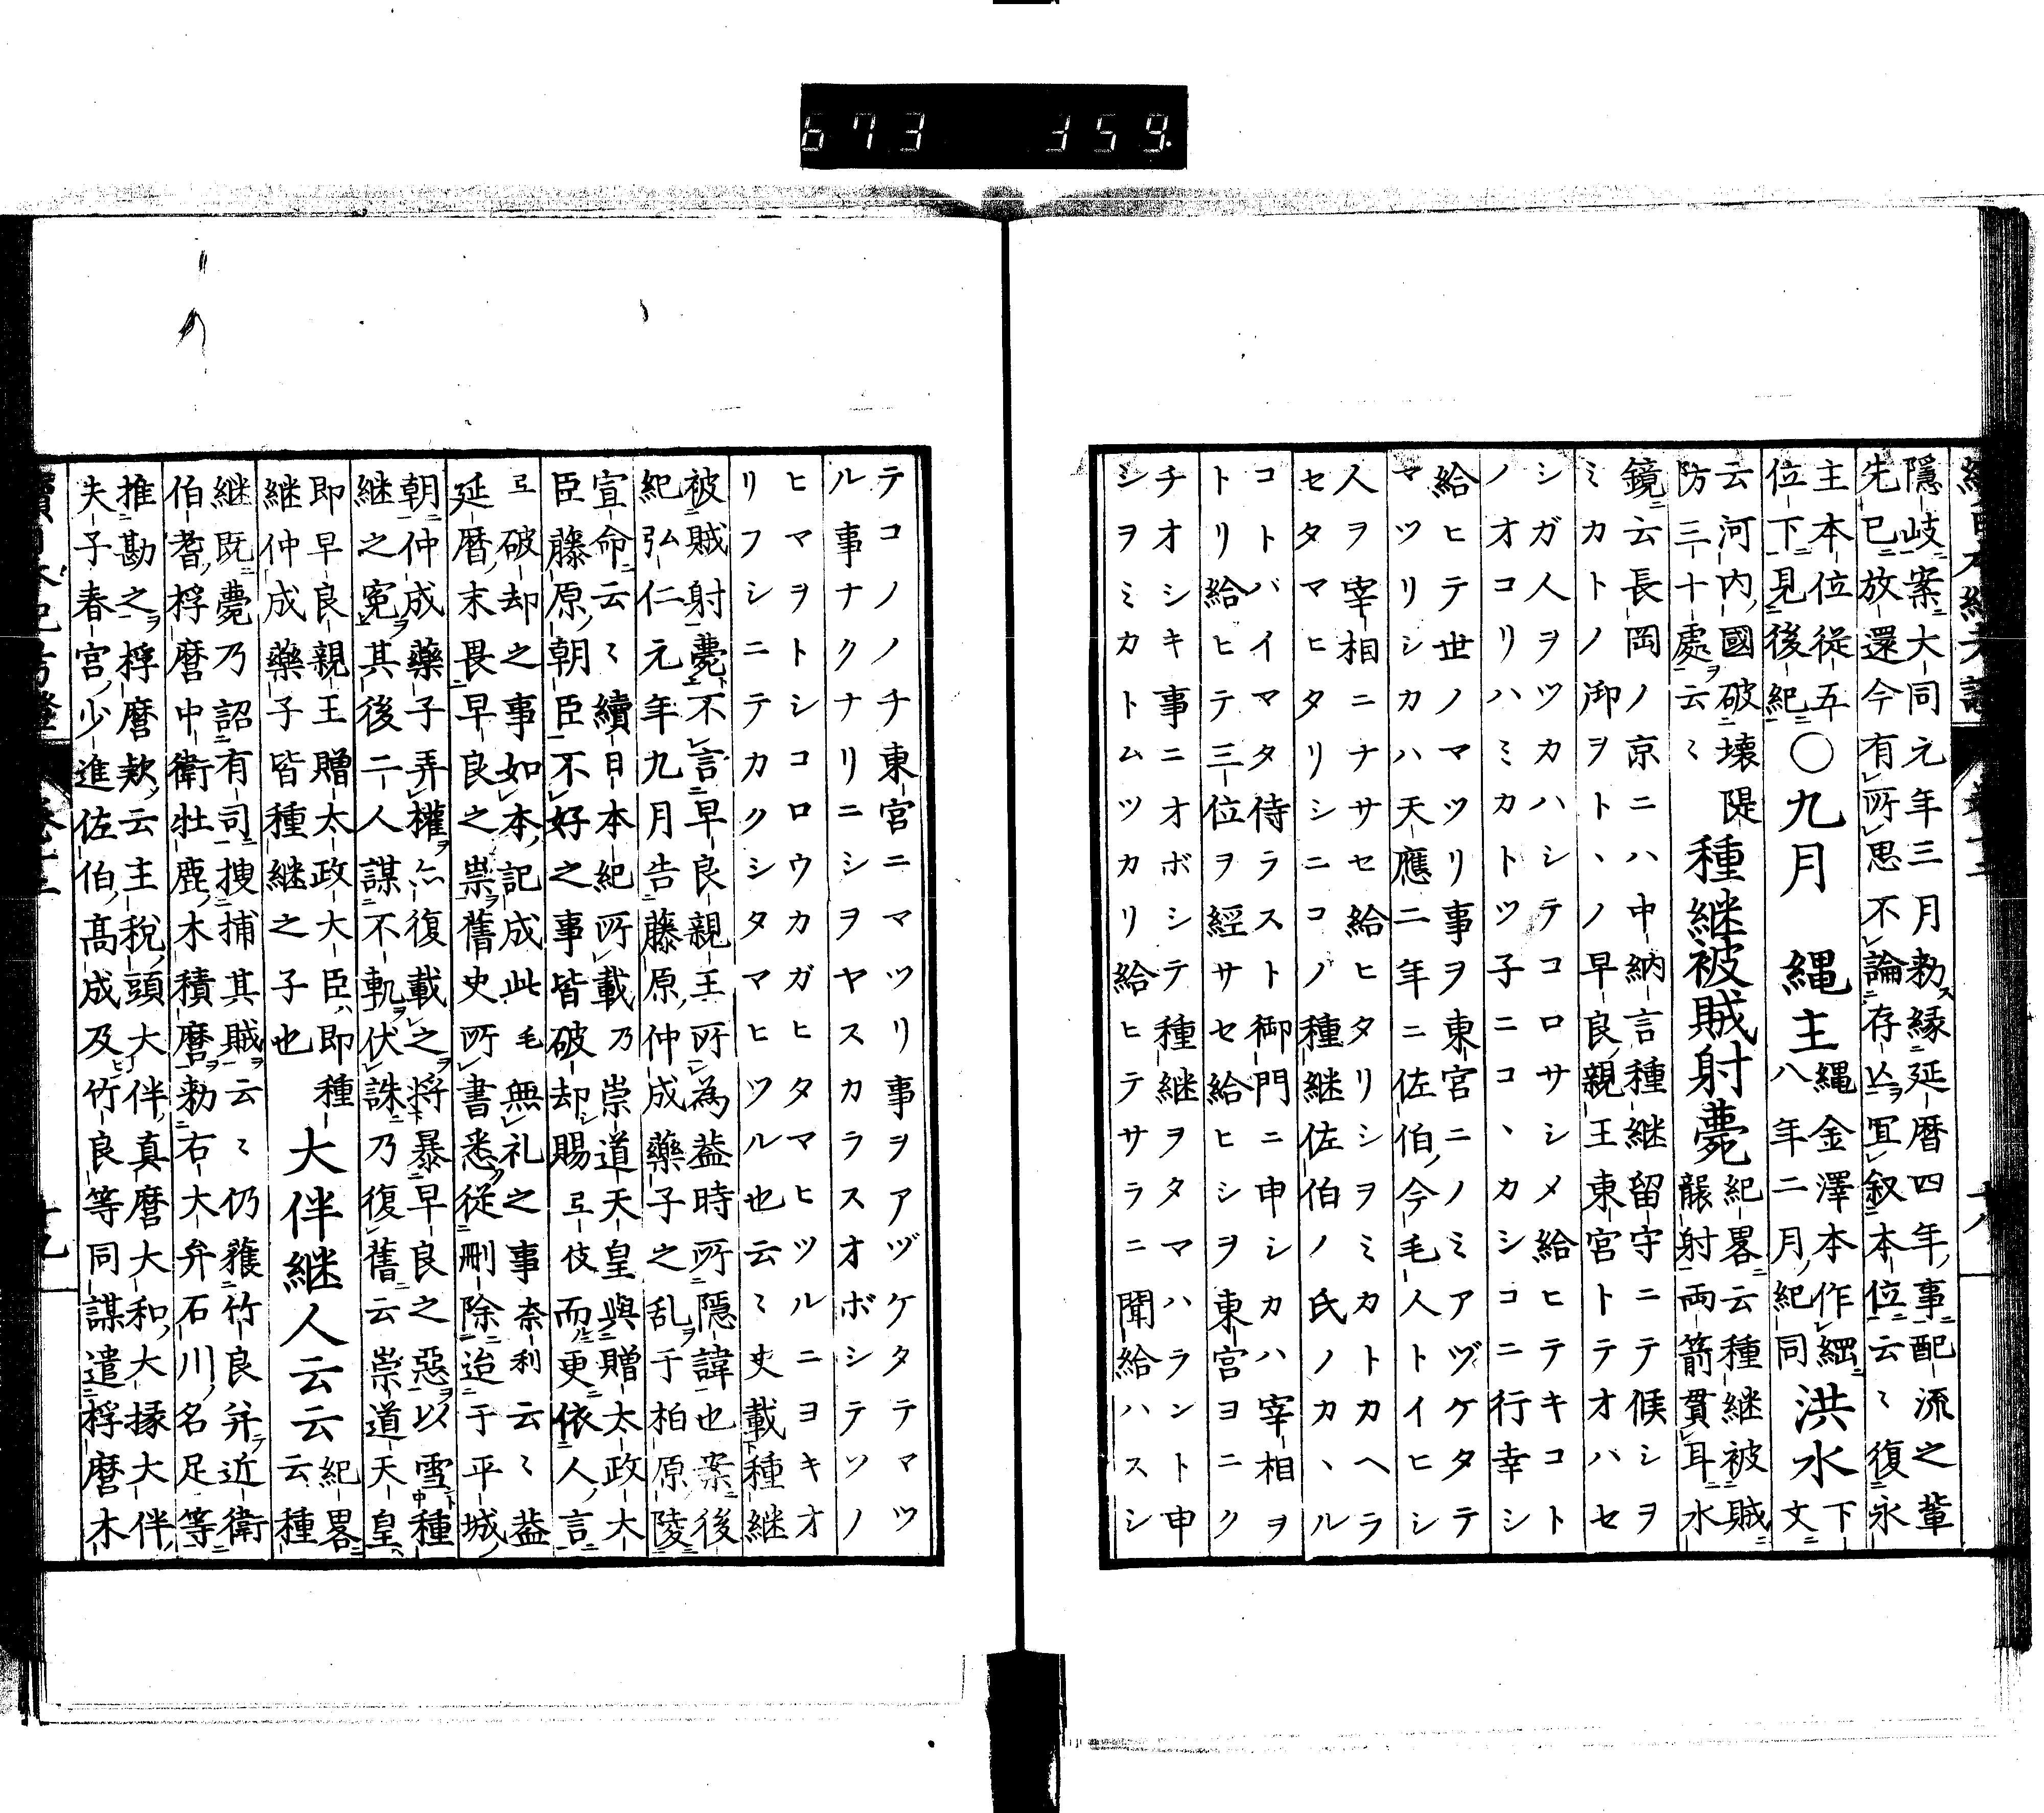 673 359.
隱岐案大同元年三月勑緣延暦四年事配流之輩
先已放還今有所思不論存亡宜叙本位云〻復永
主本位従五位下見後紀〇九月 縄主縄金澤本作綱八年二月紀同洪水下文
云河内國破壊隄防三十處云〻種継被賊射薨紀畧云種継被賊襲射両箭貫耳水
鏡云長岡ノ京ニハ中納言種継留守ニテ候シヲ
ミカトノ御ヲトヽノ早良親王東宮トテオハセ
シガ人ヲツカハシテコロサシメ給ヒテキコト
ノオコリハミカトツ子ニコヽカシコニ行幸シ
給ヒテ世ノマツリ事ヲ東宮ニノミアヅケタテ
マツリシカハ天應二年ニ佐伯今毛人トイヒシ
人ヲ宰相ニナサセ給ヒタリシヲミカトカヘラ
セタマヒタリシニコノ種継佐伯ノ氏ノカヽル
コトバイマタ侍ラスト御門ニ申シカハ宰相ヲ
トリ給ヒテ三位ヲ經サセ給ヒシヲ東宮ヨニク
チオシキ事ニオボシテ種継ヲタマハラント申
シヲミカトムツカリ給ヒテサラニ聞給ハスシ
テコノノチ東宮ニマツリ事ヲアヅケタテマツ
ル事ナクナリニシヲヤスカラスオボシテソノ
ヒマヲトシコロウカガヒタマヒツルニヨキオ
リフシニテカクシタマヒツル也云〻史載種継
被賊射薨不言早良親王所為葢時所隱諱也案後
紀弘仁元年九月告藤原仲成藥子之乱于柏原陵
宣命云〻續日本紀所載乃崇道天皇與贈太政大
臣藤原朝臣不好之事皆破却賜弖伎而更依人言
弖破却之事如本記成此毛無礼之事奈利云〻葢
延暦末畏早良之祟舊史所書悉従刪除迨于平城
朝仲成藥子弄權亦復載之将暴早良之惡以雪種
継之寃其後二人謀不軌伏誅乃復舊云崇道天皇
即早良親王贈太政大臣即種継仲成藥子皆種継之子也大伴継人云云紀畧云種
継既薨乃詔有司搜捕其賊云〻仍獲竹良并近衛
伯耆桴麿中衛牡鹿木積麿勑右大弁石川名足等
推勘之桴麿欵云主税頭大伴真麿大和大掾大伴
夫子春宮少進佐伯髙成及竹良等同謀遣桴麿木